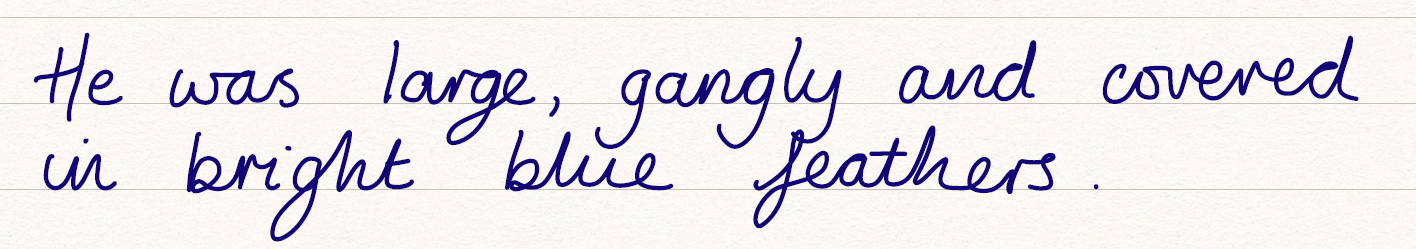 He was large, gangly and covered
in bright blue feathers.